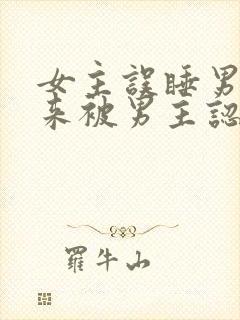 女主誤睡男
来被男主認
羅牛山